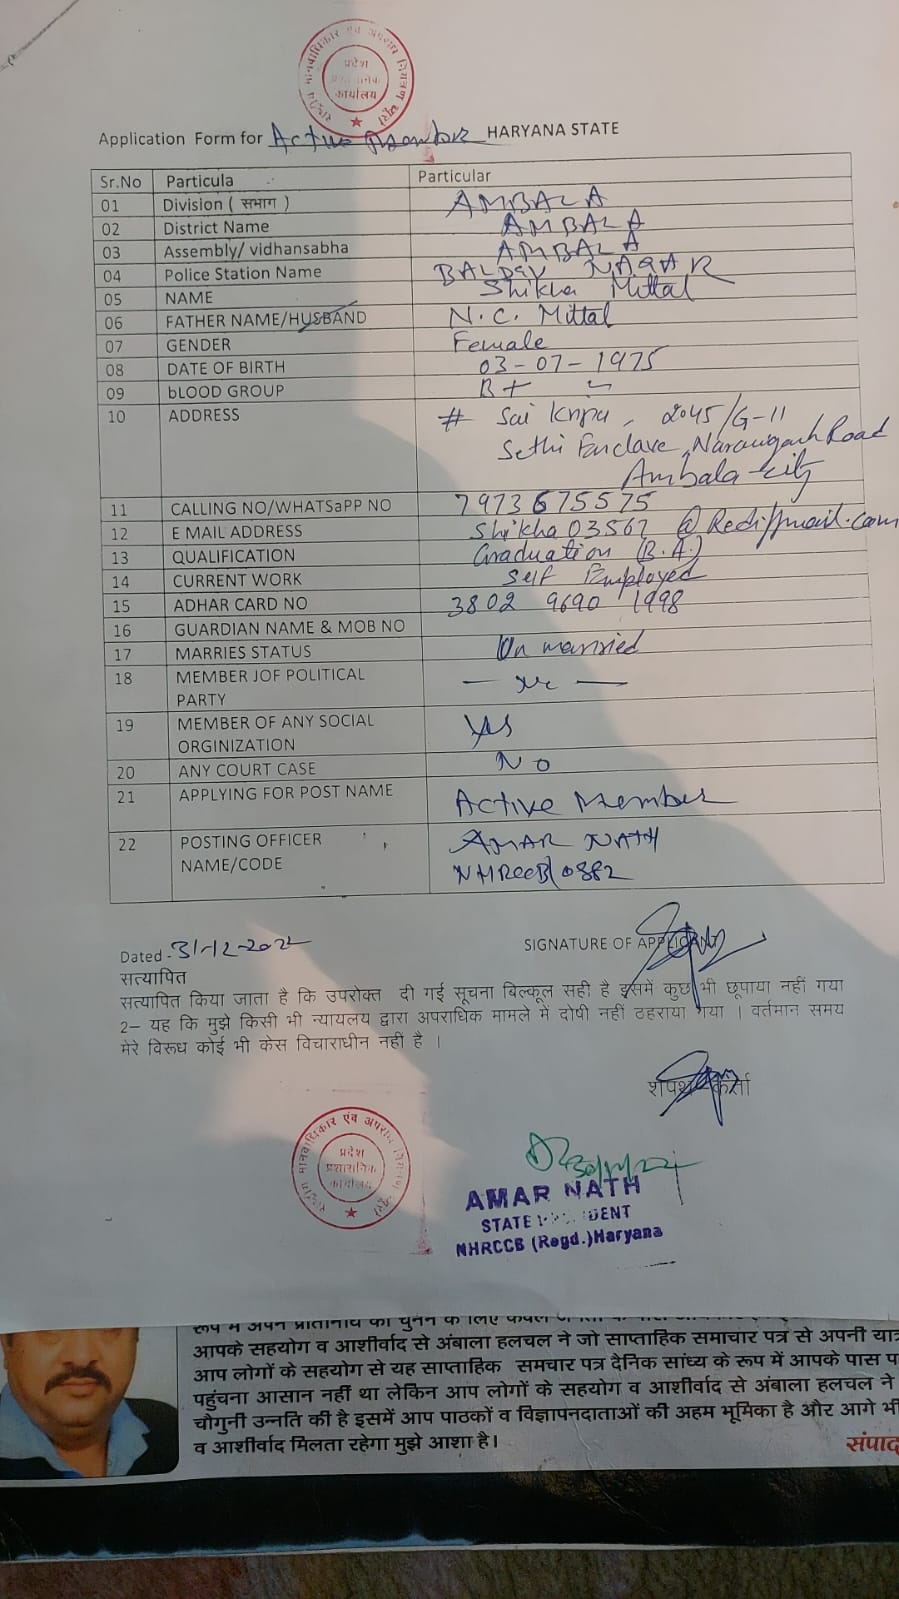 राष्ट्रीय मानवाधिकार एंव अपराध नियंत्रण ब्यूरो
प्रदेश
कार्यालय
Application Form for Active Member HARYANA STATE
Sr.No Particula Particular
01 Division ( सभाग ) AMBALA
02 District Name AMBALA
03 Assembly/ vidhansabha AMBALA
04 Police Station Name BALDEV NAGAR
05 NAME Shikha Mittal
06 FATHER NAME/HUSBAND N.C. Mittal
07 GENDER Female
08 DATE OF BIRTH 03-07-1975
09 bLOOD GROUP B+
10 ADDRESS # Sai Kripa, 2045/G-11
Sethi Enclave, Naraingarh Road
Ambala city
11 CALLING NO/WHATSaPP NO 7973675575
12 E MAIL ADDRESS Shikha03567 @Rediffmail.com
13 QUALIFICATION Graduation (B.A.)
14 CURRENT WORK Self Employed
15 ADHAR CARD NO 3802 9690 1998
16 GUARDIAN NAME & MOB NO
17 MARRIES STATUS Un married
18 MEMBER JOF POLITICAL
PARTY
19 MEMBER OF ANY SOCIAL Yes
ORGINIZATION
20 ANY COURT CASE No
21 APPLYING FOR POST NAME Active Member
22 POSTING OFFICER AMAR NATH
NAME/CODE NHRCCB/0882
Dated - 31-12-2022 SIGNATURE OF APPLICANT
सत्यापित
सत्यापित किया जाता है कि उपरोक्त दी गई सूचना बिल्कूल सही है इसमें कुछ भी छूपाया नहीं गया
2– यह कि मुझे किसी भी न्यायलय द्वारा अपराधिक मामले में दोषी नहीं ठहराया गया । वर्तमान समय
मेरे विरूध कोई भी केस विचाराधीन नहीं है ।
शपथ कर्ता
राष्ट्रीय मानवाधिकार एंव अपराध नियंत्रण ब्यूरो
प्रदेश
प्रशासनिक
कार्यालय
AMAR NATH
STATE PRESIDENT
NHRCCB (Regd.)Haryana
रूप में अपने प्रतिनिधि को चुनने के लिए
आपके सहयोग व आशीर्वाद से अंबाला हलचल ने जो साप्ताहिक समाचार पत्र से अपनी
आप लोगों के सहयोग से यह साप्ताहिक समचार पत्र दैनिक सांध्य के रूप में आपके पास
पहुंचना आसान नहीं था लेकिन आप लोगों के सहयोग व आशीर्वाद से अंबाला हलचल ने
चौगुनी उन्नति की है इसमें आप पाठकों व विज्ञापनदाताओं की अहम भूमिका है और आगे
व आशीर्वाद मिलता रहेगा मुझे आशा है।